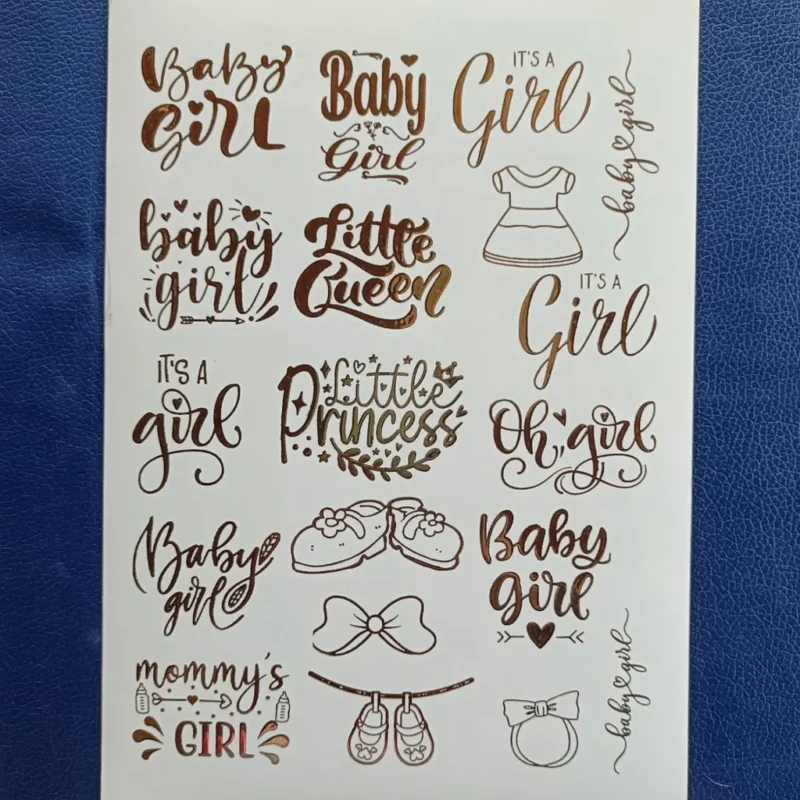 BaBy
GirL
Baby
Girl
IT'S A
Girl
baby girl
baby
girl
Little
Queen
IT'S A
Girl
IT'S A
girl
Little
Princess
Oh, girl
Baby
girl
Baby
girl
mommy's
GIRL
baby girl